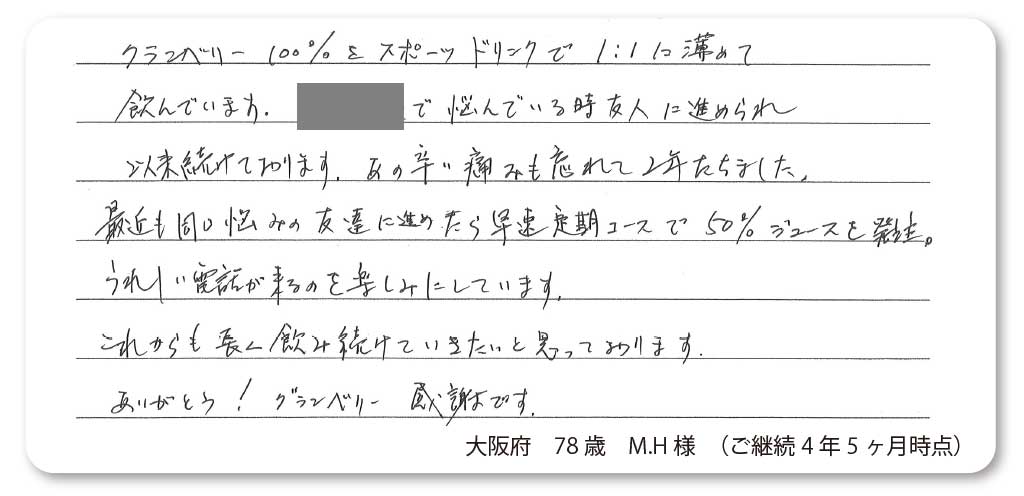 クランベリー100%をスポーツドリンクで1:1に薄めて
飲んでいます。 で悩んでいる時友人に進められ
以来続けております。あの辛い痛みも忘れて2年たちました。
最近も同じ悩みの友達に進めたら早速定期コースで50%ジュースを発注。
うれしい電話が来るのを楽しみにしています。
これからも長く飲み続けていきたいと思っております。
ありがとう!グランベリー 感謝です。
大阪府 78歳 M.H様 (ご継続4年5ヶ月時点)